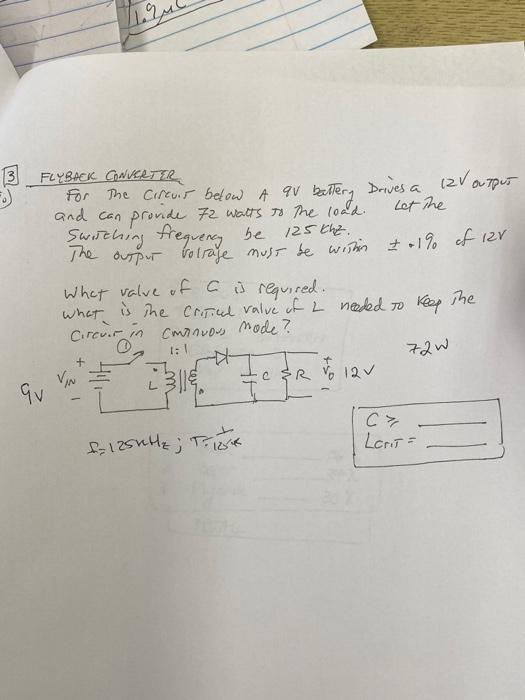 1.9μC
3 FLYBACK CONVERTER
For The Circuit below A 9V battery Drives a 12V output
and can provide 72 watts To The load. Let The
Switching frequency be 125 khz.
The output Voltage must be within ± .1% of 12V
What value of C is required.
What is The Critical value of L needed to Keep The
Circuit in Continuous Mode?
72W
1 1:1
9V VIN + - L C R + Vo - 12V
f=125KHz; T=1/125K
C ≥
LCRIT =